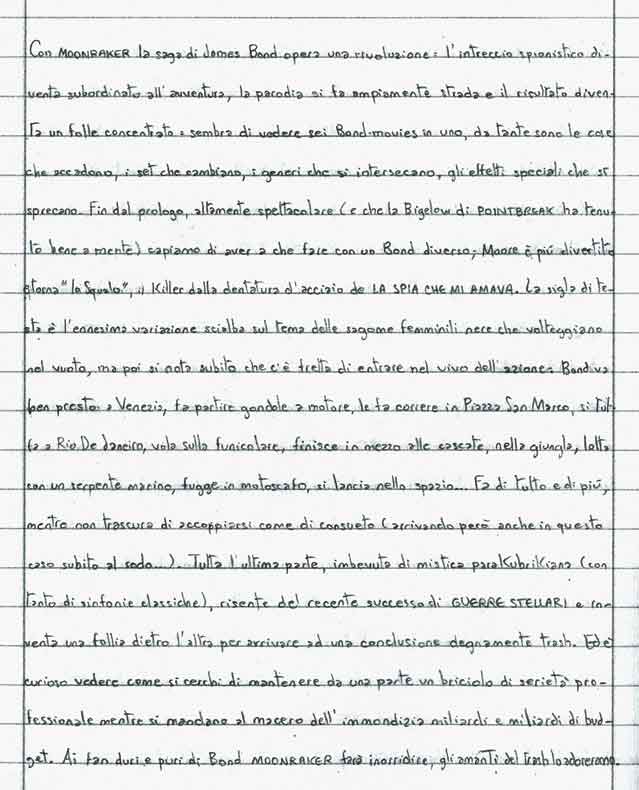 Con MOONRAKER la saga di James Bond opera una rivoluzione: l'intreccio spionistico di-
venta subordinato all'avventura, la parodia si fa ampiamente strada e il risultato diven-
ta un folle concentrato: sembra di vedere sei Bond-movies in uno, da tante sono le cose
che accadono, i set che cambiano, i generi che si intersecano, gli effetti speciali che si
sprecano. Fin dal prologo, altamente spettacolare (e che la Bigelow di POINTBREAK ha tenu-
to bene a mente) capiamo di aver a che fare con un Bond diverso; Moore è più divertito
e torna "lo Squalo", il Killer dalla dentatura d'acciaio de LA SPIA CHE MI AMAVA. La sigla di te-
sta è l'ennesima variazione scialba sul tema delle sagome femminili nere che volteggiano
nel vuoto, ma poi si nota subito che c'è fretta di entrare nel vivo dell'azione: Bond va
ben presto a Venezia, fa partire gondole a motore, le fa correre in Piazza San Marco, si tuf-
fa a Rio De Janeiro, vola sulla funicolare, finisce in mezzo alle cascate, nella giungla, lotta
con un serpente marino, fugge in motoscafo, si lancia nello spazio... Fa di tutto e di più,
mentre non trascura di accoppiarsi come di consueto (arrivando però anche in questo
caso subito al sodo...). Tutta l'ultima parte, imbevuta di mistica paraKubrikiana (con
tanto di sinfonie classiche), risente del recente successo di GUERRE STELLARI e in-
venta una follia dietro l'altra per arrivare ad una conclusione degnamente trash. Ed è
curioso vedere come si cerchi di mantenere da una parte un briciolo di serietà pro-
fessionale mentre si mandano al macero dell'immondizia miliardi e miliardi di bud-
get. Ai fan duri e puri di Bond MOONRAKER farà inorridire, gli amanti del trash lo adoreranno.